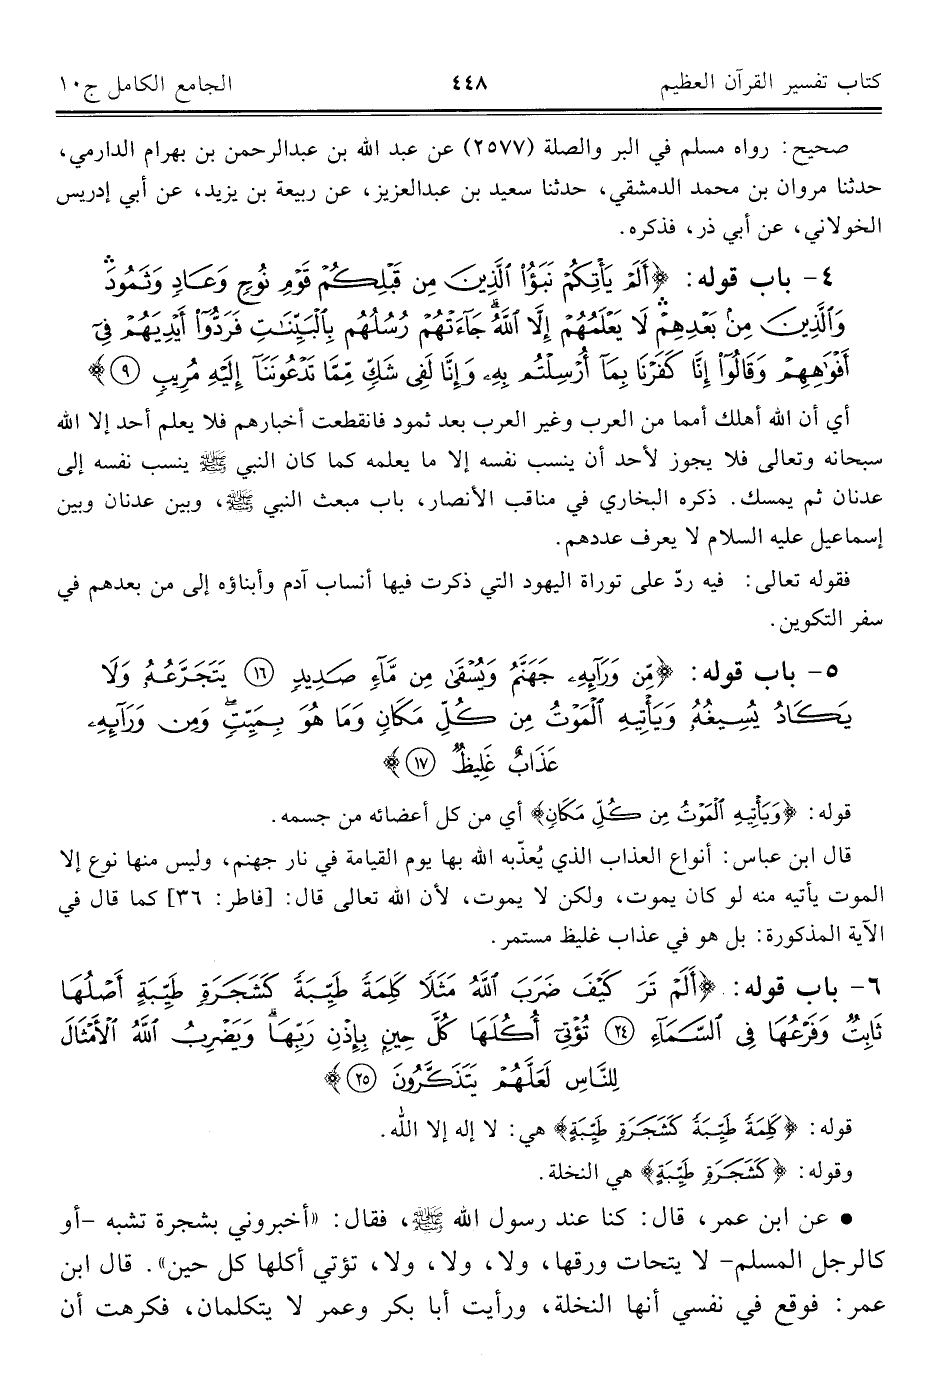 كتاب تفسير القرآن العظيم ٤٤٨ الجامع الكامل ج١٠
صحيح: رواه مسلم في البر والصلة (٢٥٧٧) عن عبد الله بن عبدالرحمن بن بهرام الدارمي،
حدثنا مروان بن محمد الدمشقي، حدثنا سعيد بن عبدالعزيز، عن ربيعة بن يزيد، عن أبي إدريس
الخولاني، عن أبي ذر، فذكره.
٤- باب قوله: ﴿أَلَمْ يَأْتِكُمْ نَبَؤُا۟ ٱلَّذِينَ مِن قَبْلِكُمْ قَوْمِ نُوحٍ وَعَادٍ وَثَمُودَ ۛ
وَٱلَّذِينَ مِنۢ بَعْدِهِمْ ۛ لَا يَعْلَمُهُمْ إِلَّا ٱللَّهُ ۚ جَآءَتْهُمْ رُسُلُهُم بِٱلْبَيِّنَٰتِ فَرَدُّوٓا۟ أَيْدِيَهُمْ فِىٓ
أَفْوَٰهِهِمْ وَقَالُوٓا۟ إِنَّا كَفَرْنَا بِمَآ أُرْسِلْتُم بِهِۦ وَإِنَّا لَفِى شَكٍّ مِّمَّا تَدْعُونَنَآ إِلَيْهِ مُرِيبٍ ٩﴾
أي أن الله أهلك أمما من العرب وغير العرب بعد ثمود فانقطعت أخبارهم فلا يعلم أحد إلا الله
سبحانه وتعالى فلا يجوز لأحد أن ينسب نفسه إلا ما يعلمه كما كان النبي ﷺ ينسب نفسه إلى
عدنان ثم يمسك. ذكره البخاري في مناقب الأنصار، باب مبعث النبي ﷺ، وبين عدنان وبين
إسماعيل عليه السلام لا يعرف عددهم.
فقوله تعالى: فيه ردّ على توراة اليهود التي ذكرت فيها أنساب آدم وأبناؤه إلى من بعدهم في
سفر التكوين.
٥- باب قوله: ﴿مِّن وَرَآئِهِۦ جَهَنَّمُ وَيُسْقَىٰ مِن مَّآءٍ صَدِيدٍ ١٦ يَتَجَرَّعُهُۥ وَلَا
يَكَادُ يُسِيغُهُۥ وَيَأْتِيهِ ٱلْمَوْتُ مِن كُلِّ مَكَانٍ وَمَا هُوَ بِمَيِّتٍ ۖ وَمِن وَرَآئِهِۦ
عَذَابٌ غَلِيظٌ ١٧﴾
قوله: ﴿وَيَأْتِيهِ ٱلْمَوْتُ مِن كُلِّ مَكَانٍ﴾ أي من كل أعضائه من جسمه.
قال ابن عباس: أنواع العذاب الذي يُعذّبه الله بها يوم القيامة في نار جهنم، وليس منها نوع إلا
الموت يأتيه منه لو كان يموت، ولكن لا يموت، لأن الله تعالى قال: [فاطر: ٣٦] كما قال في
الآية المذكورة: بل هو في عذاب غليظ مستمر.
٦- باب قوله: ﴿أَلَمْ تَرَ كَيْفَ ضَرَبَ ٱللَّهُ مَثَلًا كَلِمَةً طَيِّبَةً كَشَجَرَةٍ طَيِّبَةٍ أَصْلُهَا
ثَابِتٌ وَفَرْعُهَا فِى ٱلسَّمَآءِ ٢٤ تُؤْتِىٓ أُكُلَهَا كُلَّ حِينٍۭ بِإِذْنِ رَبِّهَا ۗ وَيَضْرِبُ ٱللَّهُ ٱلْأَمْثَالَ
لِلنَّاسِ لَعَلَّهُمْ يَتَذَكَّرُونَ ٢٥﴾
قوله: ﴿كَلِمَةً طَيِّبَةً كَشَجَرَةٍ طَيِّبَةٍ﴾ هي: لا إله إلا الله.
وقوله: ﴿كَشَجَرَةٍ طَيِّبَةٍ﴾ هي النخلة.
• عن ابن عمر، قال: كنا عند رسول الله ﷺ، فقال: «أخبروني بشجرة تشبه -أو
كالرجل المسلم- لا يتحات ورقها، ولا، ولا، ولا، تؤتي أكلها كل حين». قال ابن
عمر: فوقع في نفسي أنها النخلة، ورأيت أبا بكر وعمر لا يتكلمان، فكرهت أن